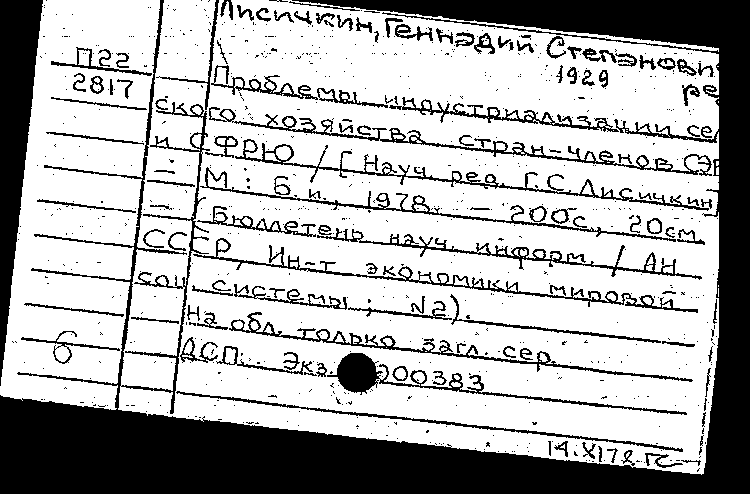 Лисичкин, Геннадий Степанови
1929 ре
П22
2817
Проблемы индустриализации се
ского хозяйства стран-членов СЭ
и СФРЮ / [Науч. ред. Г.С. Лисичкин]
— М.: Б.и., 1978. — 200с., 20см.
— (Бюллетень науч. информ. / АН
СССР, Ин-т экономики мировой
соц. системы; №2).
На обл. только загл. сер.
ДСП. Экз. 200383
6